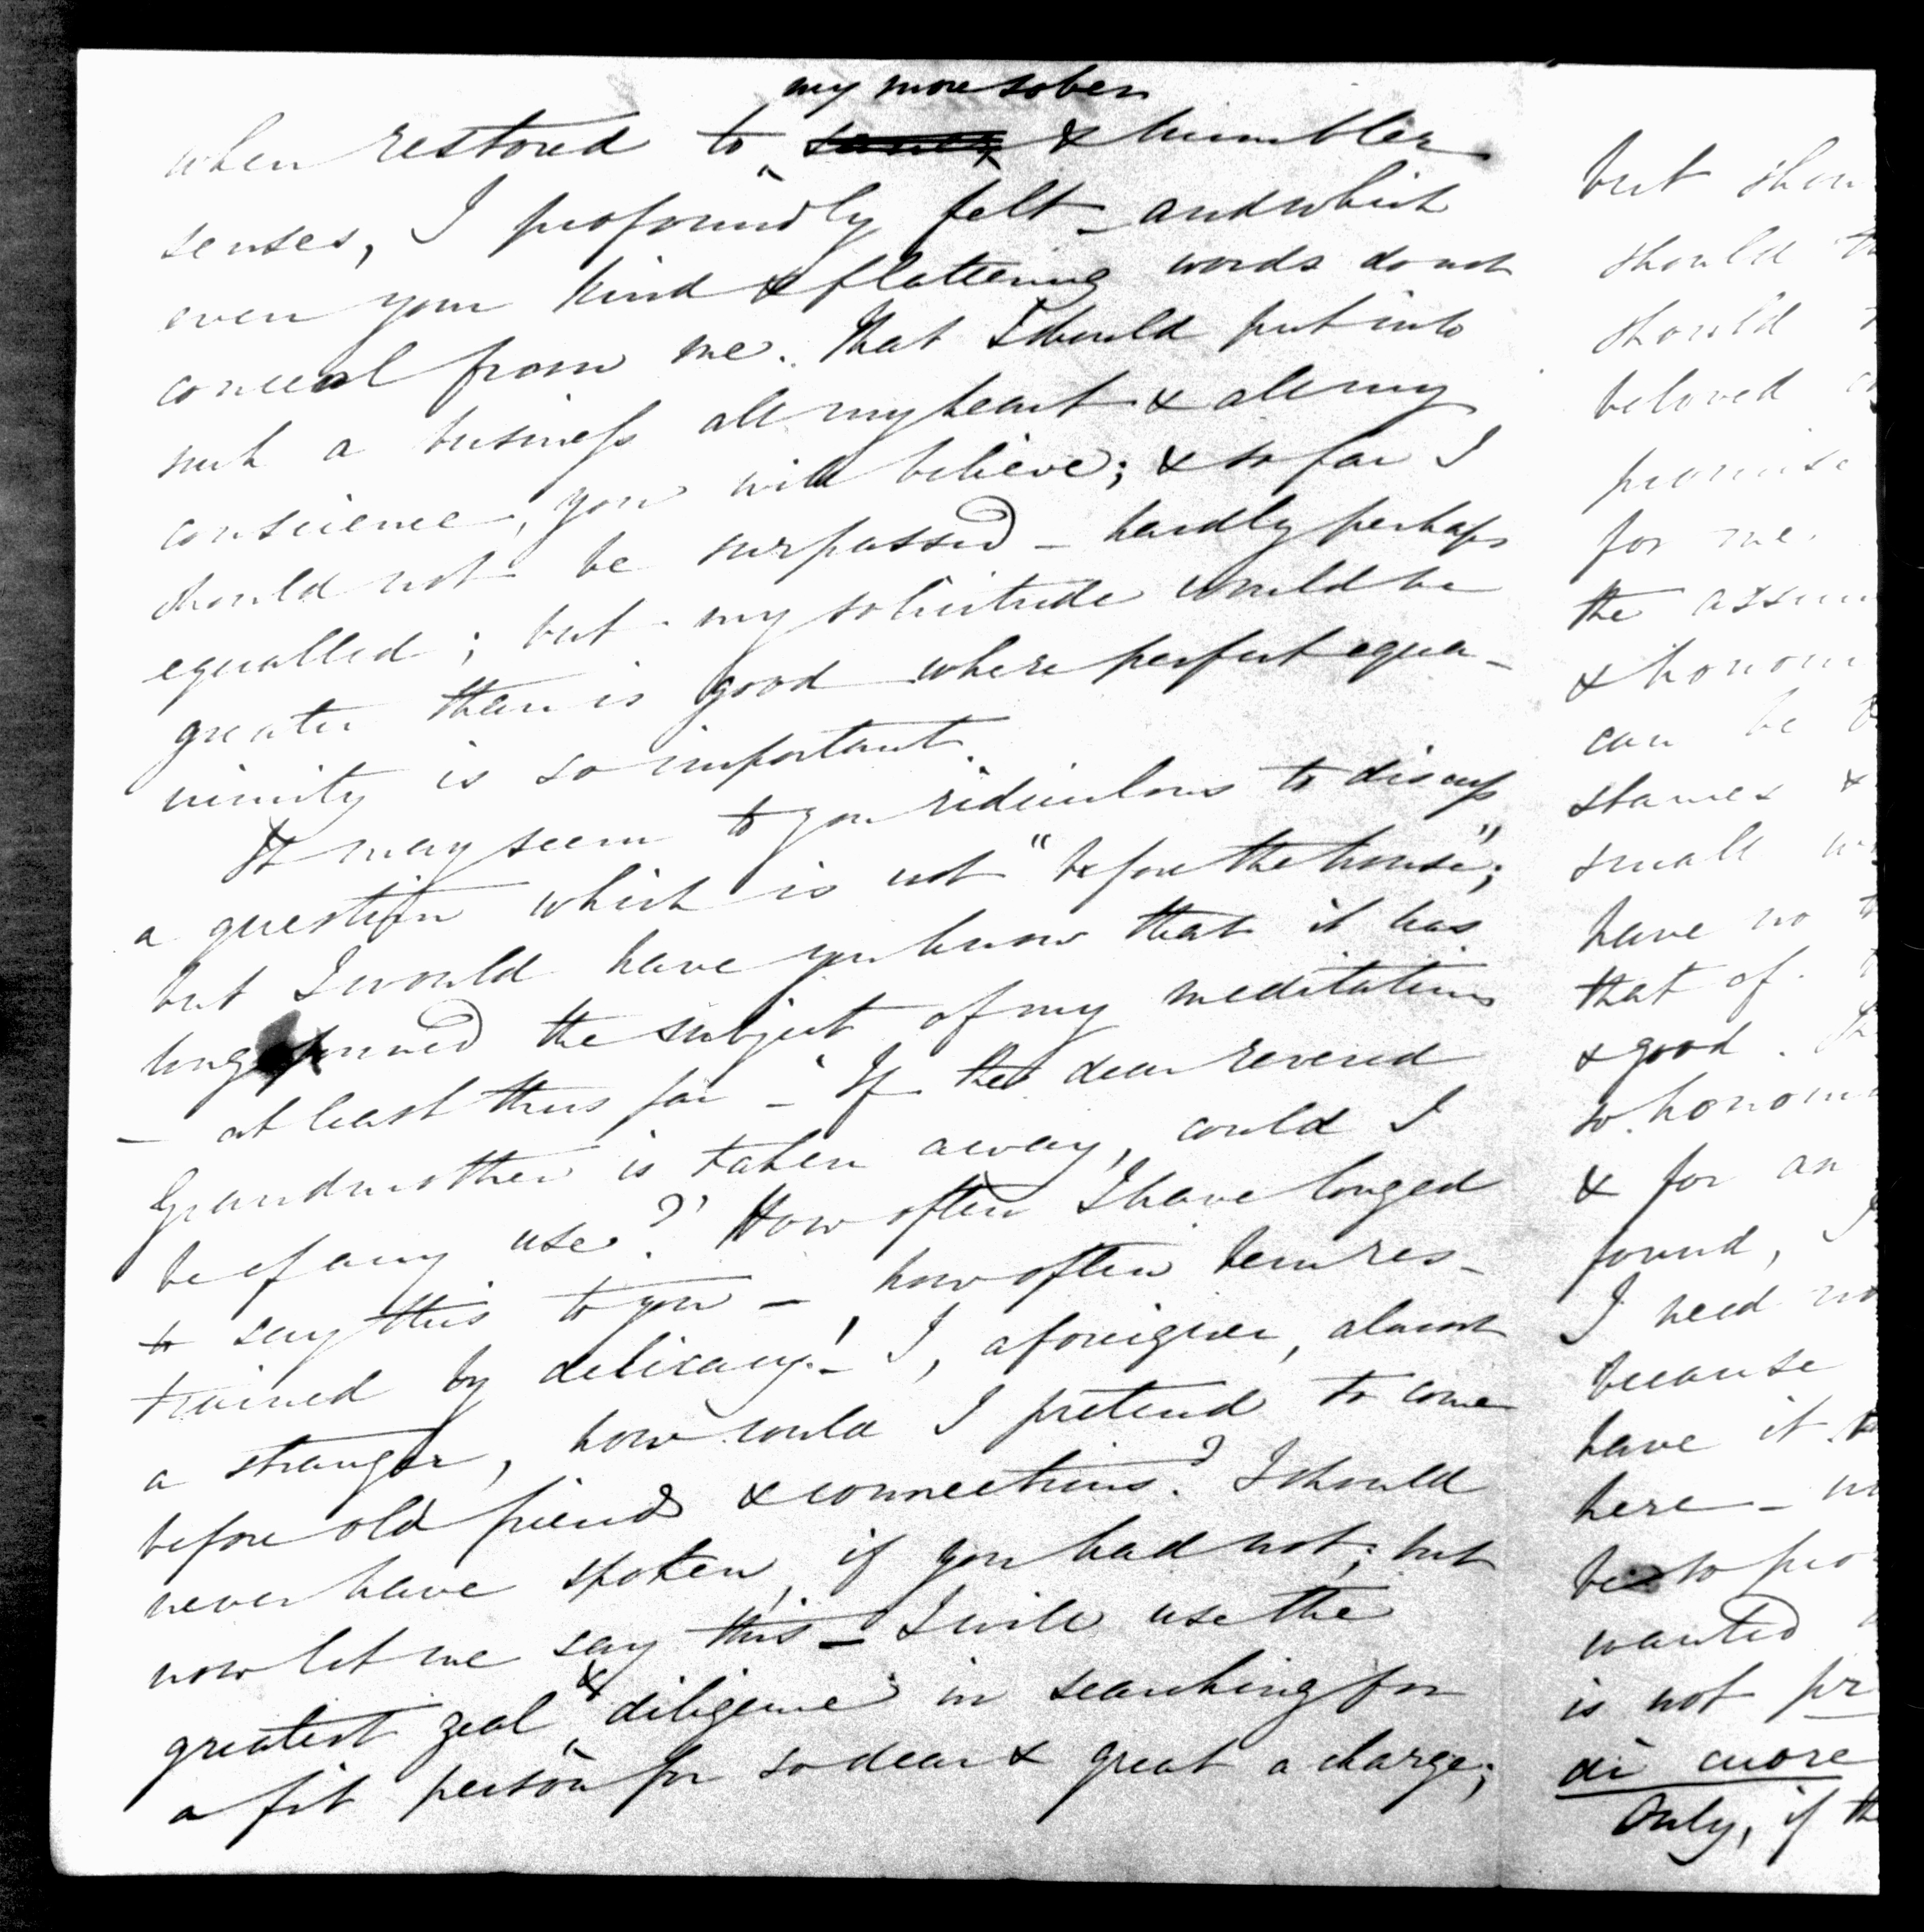 my more sober
when restored to & humbler
senses, I profoundly felt – and which
even your kind & flattering words do not
conceal from me. That I should put into
such a business all my heart & all my
conscience, you will believe; & so far I
should not be surpassed – hardly perhaps
equalled; but my solicitude would be
greater than is good where perfect equa-
nimity is so important.
It may seem to you ridiculous to discuss
a question which is not "before the house";
but I would have you know that it has
long formed the subject of my meditations
– at least thus far – 'If the dear revered
Grandmother is taken away, could I
be of any use?' How often I have longed
to say this to you – how often been res-
trained by delicacy! – I, a foreigner, almost
a stranger, how could I pretend to come
before old friends & connections? I should
never have spoken, if you had not; but
now let me say this – I will use the
greatest zeal & diligence in searching for
a fit person for so dear & great a charge;
but shou
should
should
beloved
promise
for me.
the assu
& honour
can be
stances &
small
have no
that of
& good.
so honour
& for an
found,
I need no
because
have it
here –
be so pro
wanted
is not pr
di cuore
Only, if th